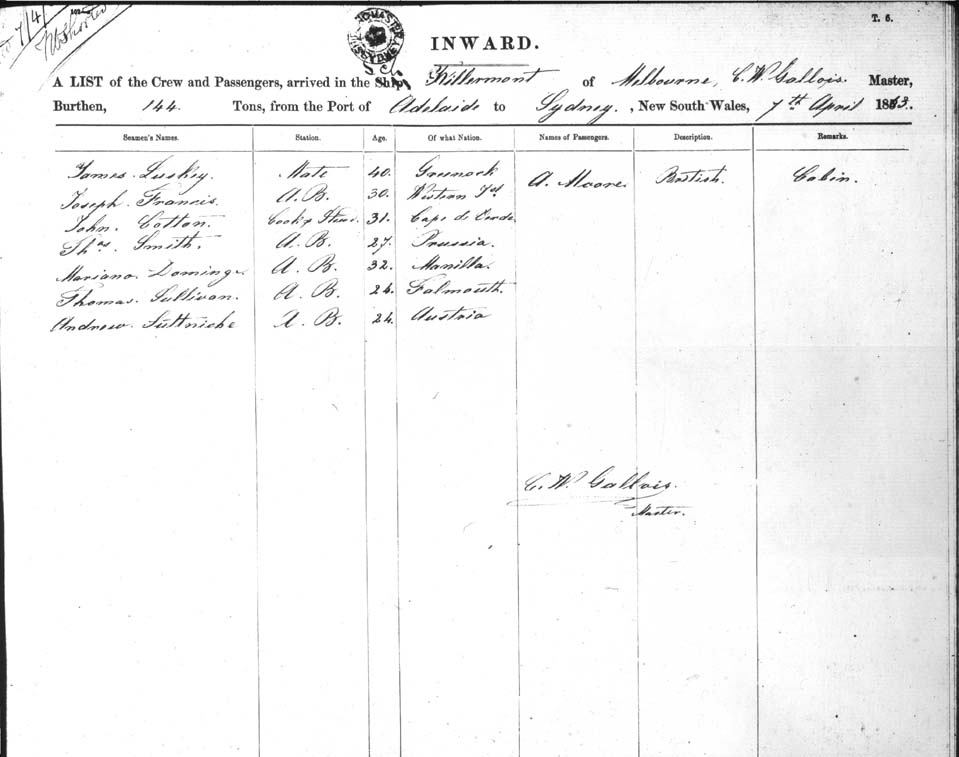 T. 5.
7/4/
INWARD.
A LIST of the Crew and Passengers, arrived in the Ship Killermont of Melbourne, C. W. Gallois. Master,
Burthen, 144. Tons, from the Port of Adelaide to Sydney. , New South Wales, 7th April 1883.
Seamen's Names. Station. Age. Of what Nation. Names of Passengers. Description. Remarks.
James Luskey. Mate 40. Greenock A. Moore. British. Cabin.
Joseph Francis. A.B. 30. Western Isd
John Cotton. Cook & Stewd. 31. Cape de Verde
Thos. Smith. A. B. 27. Prussia.
Mariano Domingo. A. B. 32. Manilla.
Thomas Sullivan. A. B. 24. Falmouth.
Andrew A. B. 24. Austria
C. W. Gallois.
Master.